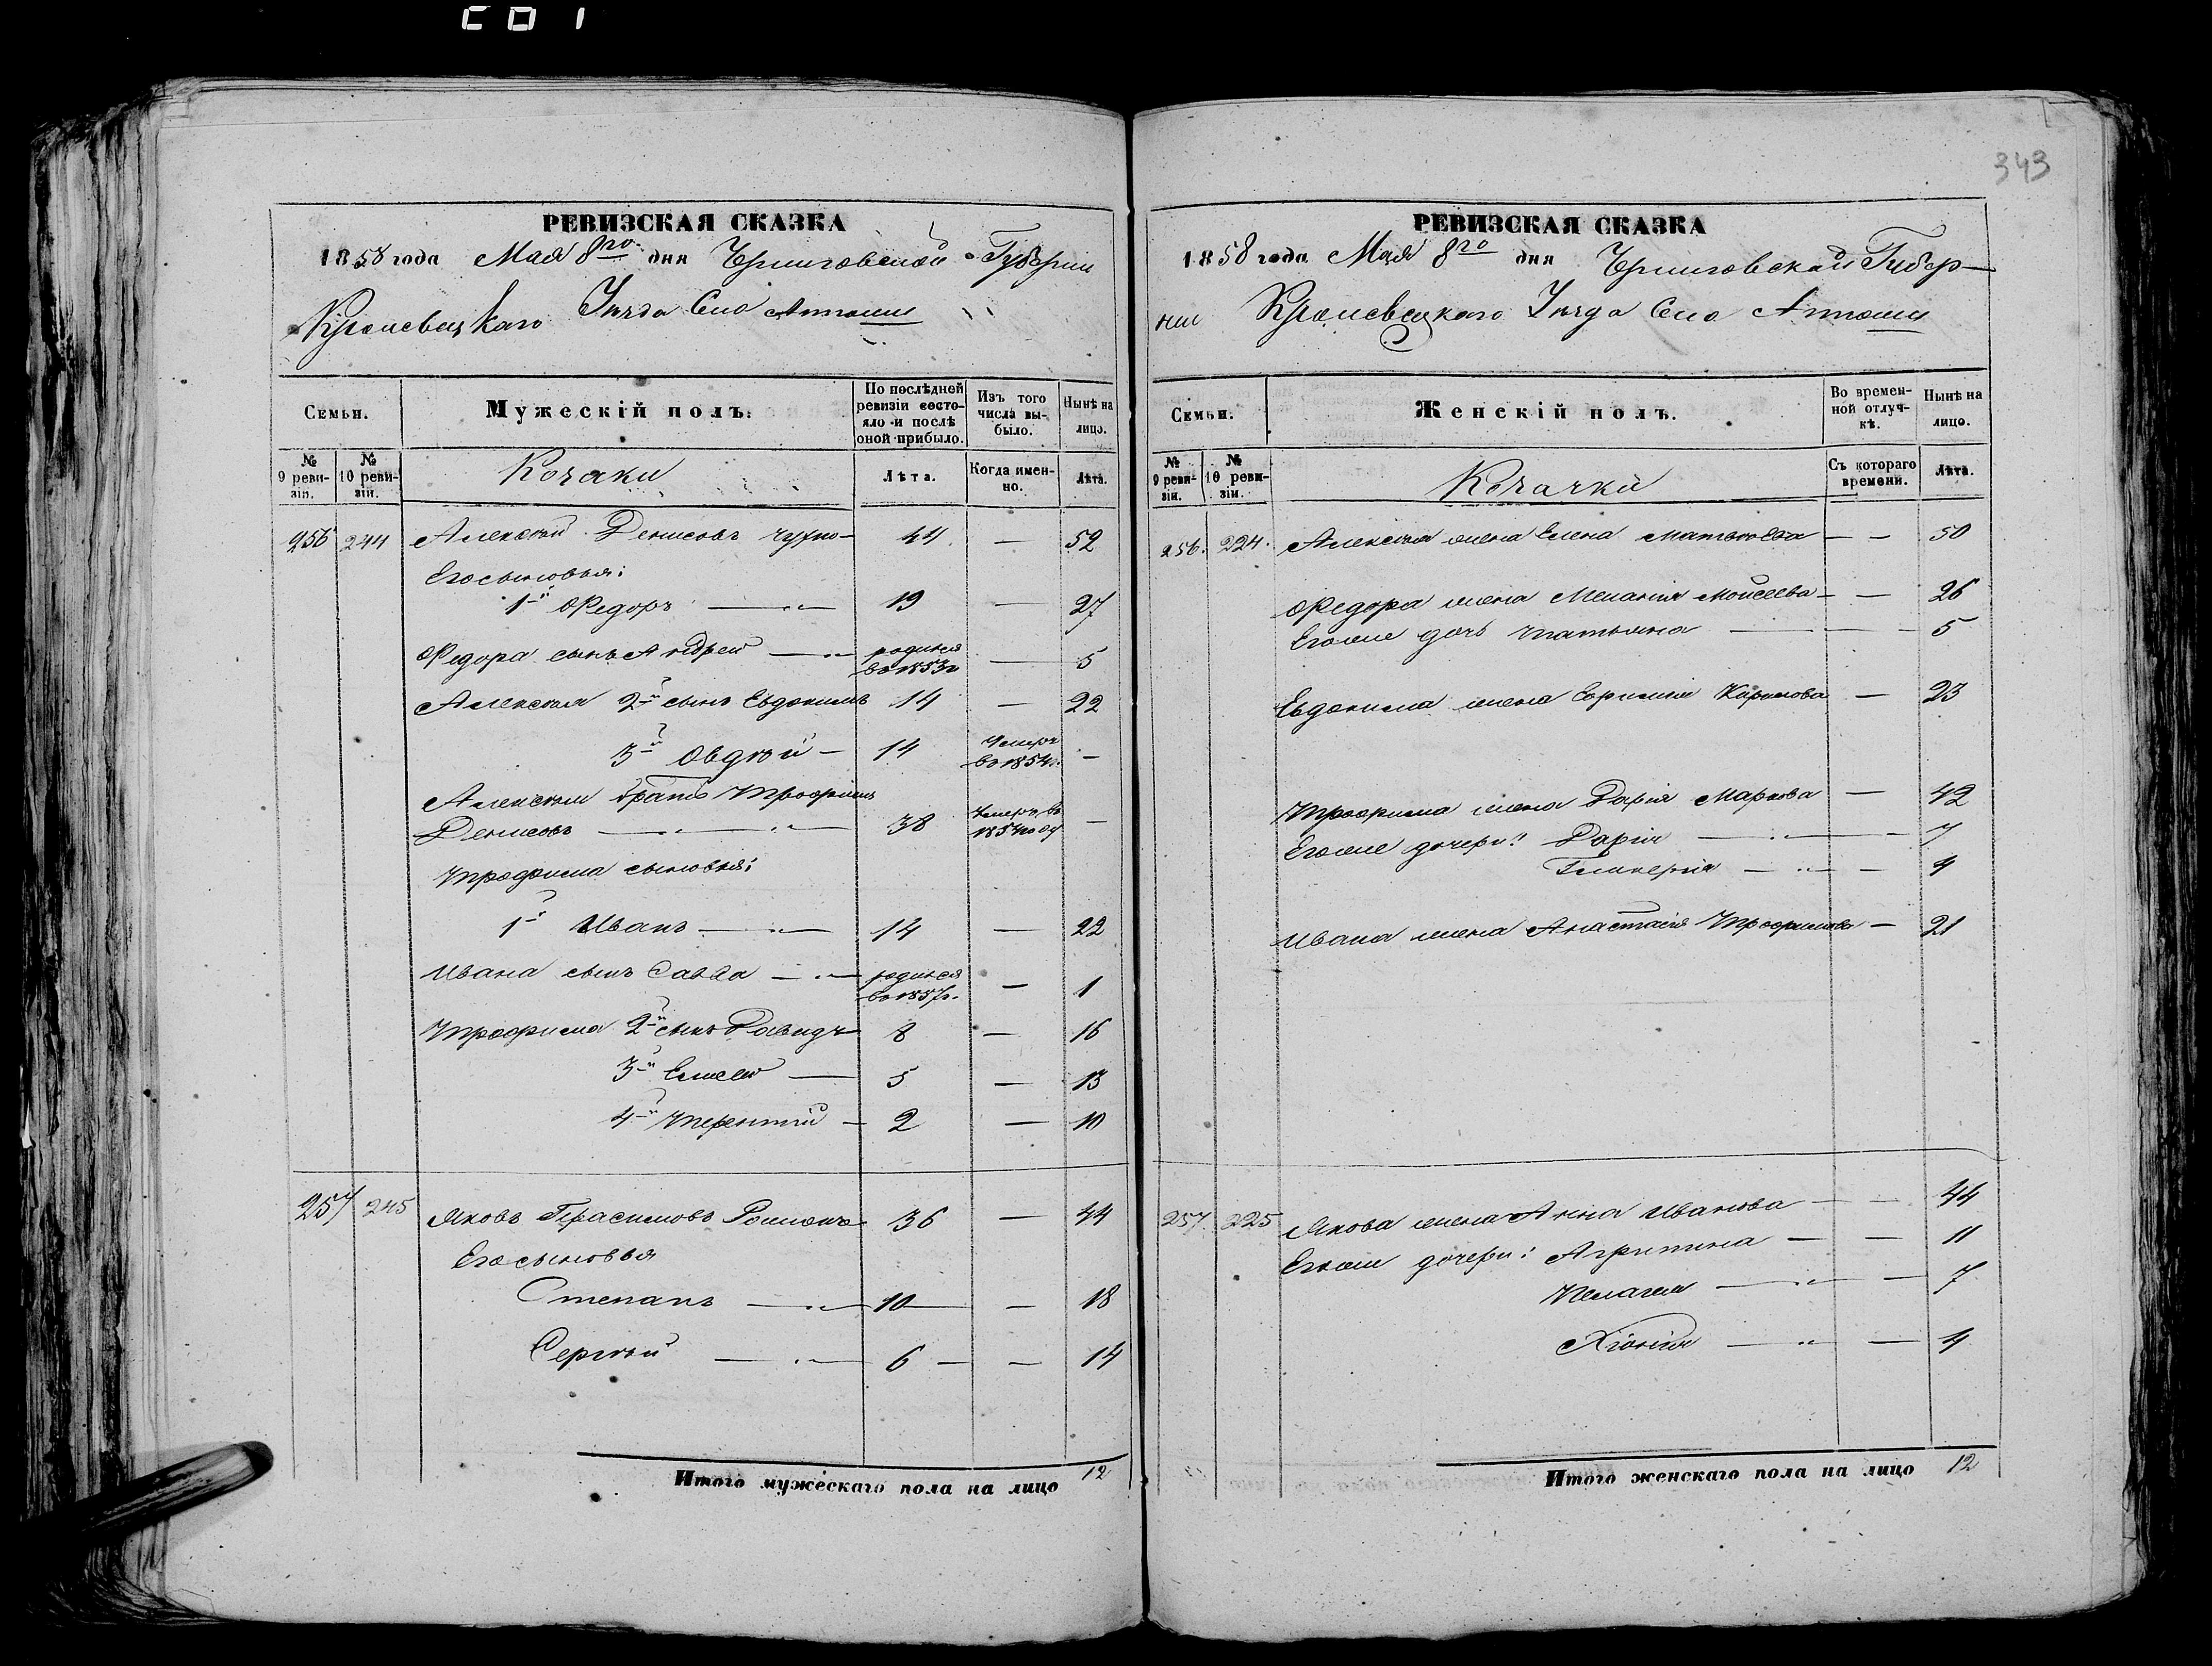 РЕВИЗСКАЯ СКАЗКА
1858 года Мая 8го дня Черниговской Губернии
Кролевецкаго Уезда Село Алтыновки
Семьи.
Мужескій полъ.
По послѣдней ревизіи состояло и послѣ оной прибыло.
Изъ того числа выбыло.
Нынѣ на лицо.
№ 9 ревизіи.
№ 10 ревизіи.
Козаки
Лѣта.
Когда именно.
Лѣта.
256 244 Алексѣй Денисовъ 44 — 52
Его сыновья:
1й Федоръ — „ — 19 — 27
Федора сынъ Андрей — „ родился въ 1853г — 5
Алексѣя 2й сынъ Евдокимъ 14 — 22
3й Овдѣй — 14 Умеръ въ 1854г. —
Алексѣя братъ Трофимъ
Денисовъ — „ — „ — 38 Умеръ въ 1854 году —
Трофима сыновья:
1й Иванъ — „ — 14 — 22
Ивана сынъ Савва — „ — родился въ 1857г. — 1
Трофима 2й сынъ Давидъ 8 — 16
3й Елисей — 5 — 13
4й Терентій — 2 — 10
257 245 Яковъ Герасимовъ 36 — 44
Его сыновья
Степанъ — „ — 10 — — 18
Сергѣй — „ — 6 — — 14
Итого мужескаго пола на лицо 12
343
РЕВИЗСКАЯ СКАЗКА
1858 года Мая 8го дня Черниговской Губер-
ніи Кролевецкаго Уезда Село Алтыновки
Семьи.
Женскій полъ.
Во временной отлучкѣ.
Нынѣ на лицо.
№ 9 ревизіи.
№ 10 ревизіи.
Козачки
Съ котораго времени.
Лѣта.
256. 224. Алексѣя жена Елена Матвѣева — — 50
Федора жена Меланія Моисеева — — 26
Его же дочь Татьяна — — — 5
Евдокима жена Евфимія Карпова — 23
Трофима жена Дарія Маркова — 42
Его же дочери: Дарія — „ — — 7
Гликерія — „ — — 4
Ивана жена Анастасія Трофимова — 21
257. 225 Якова жена Анна Иванова — — 44
Его же дочери: Агрипина — — 11
Пелагея — „ — — 7
Хіонія — „ — 4
Итого женскаго пола на лицо 12